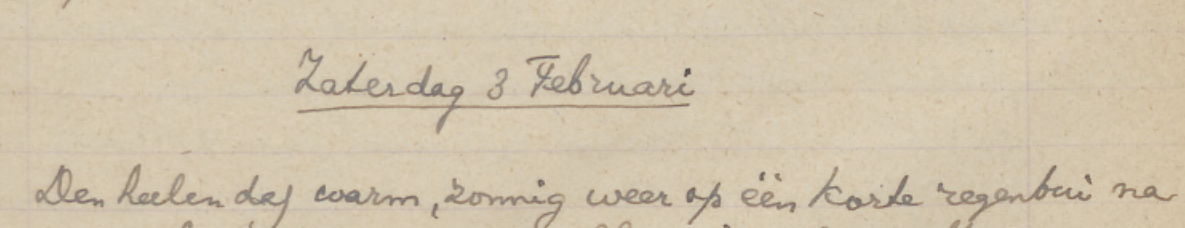 Zaterdag 3 Februari
Den heelen dag warm, zonnig weer op één korte regenbui na